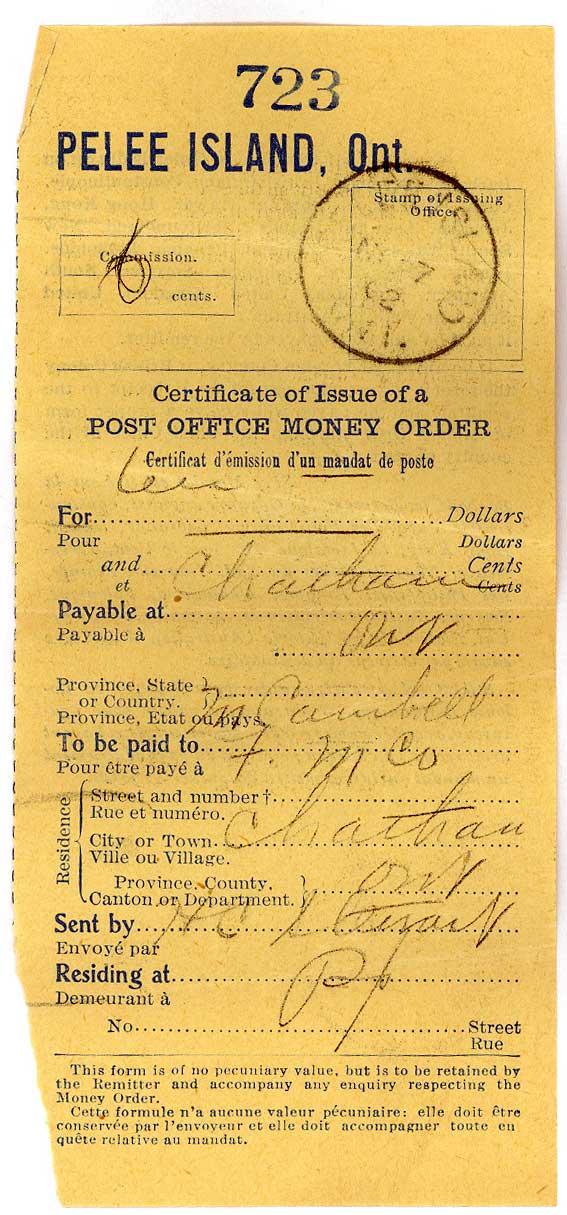 723
PELEE ISLAND, Ont.
Stamp of Issing
Office.
Commission.
6
cents.
ONT.
Certificate of Issue of a
POST OFFICE MONEY ORDER
Certificat d'émission d'un mandat de poste
Ten
For Dollars
Pour Dollars
and Cents
et Cents
Chatham
Payable at
Payable à
Ont
Province, State
or Country.
Province, Etat ou pays.
M Cambell
To be paid to
Pour être payé à
F. M Co
Residence
Street and number †
Rue et numéro.
City or Town Chatham
Ville ou Village.
Province, County,
Canton or Department.
Ont
Sent by
Envoyé par
Residing at
Demeurant à
No. Street
Rue
This form is of no pecuniary value, but is to be retained by
the Remitter and accompany any enquiry respecting the
Money Order.
Cette formule n'a aucune valeur pécuniaire: elle doit être
conservée par l'envoyeur et elle doit accompagner toute en
quête relative au mandat.